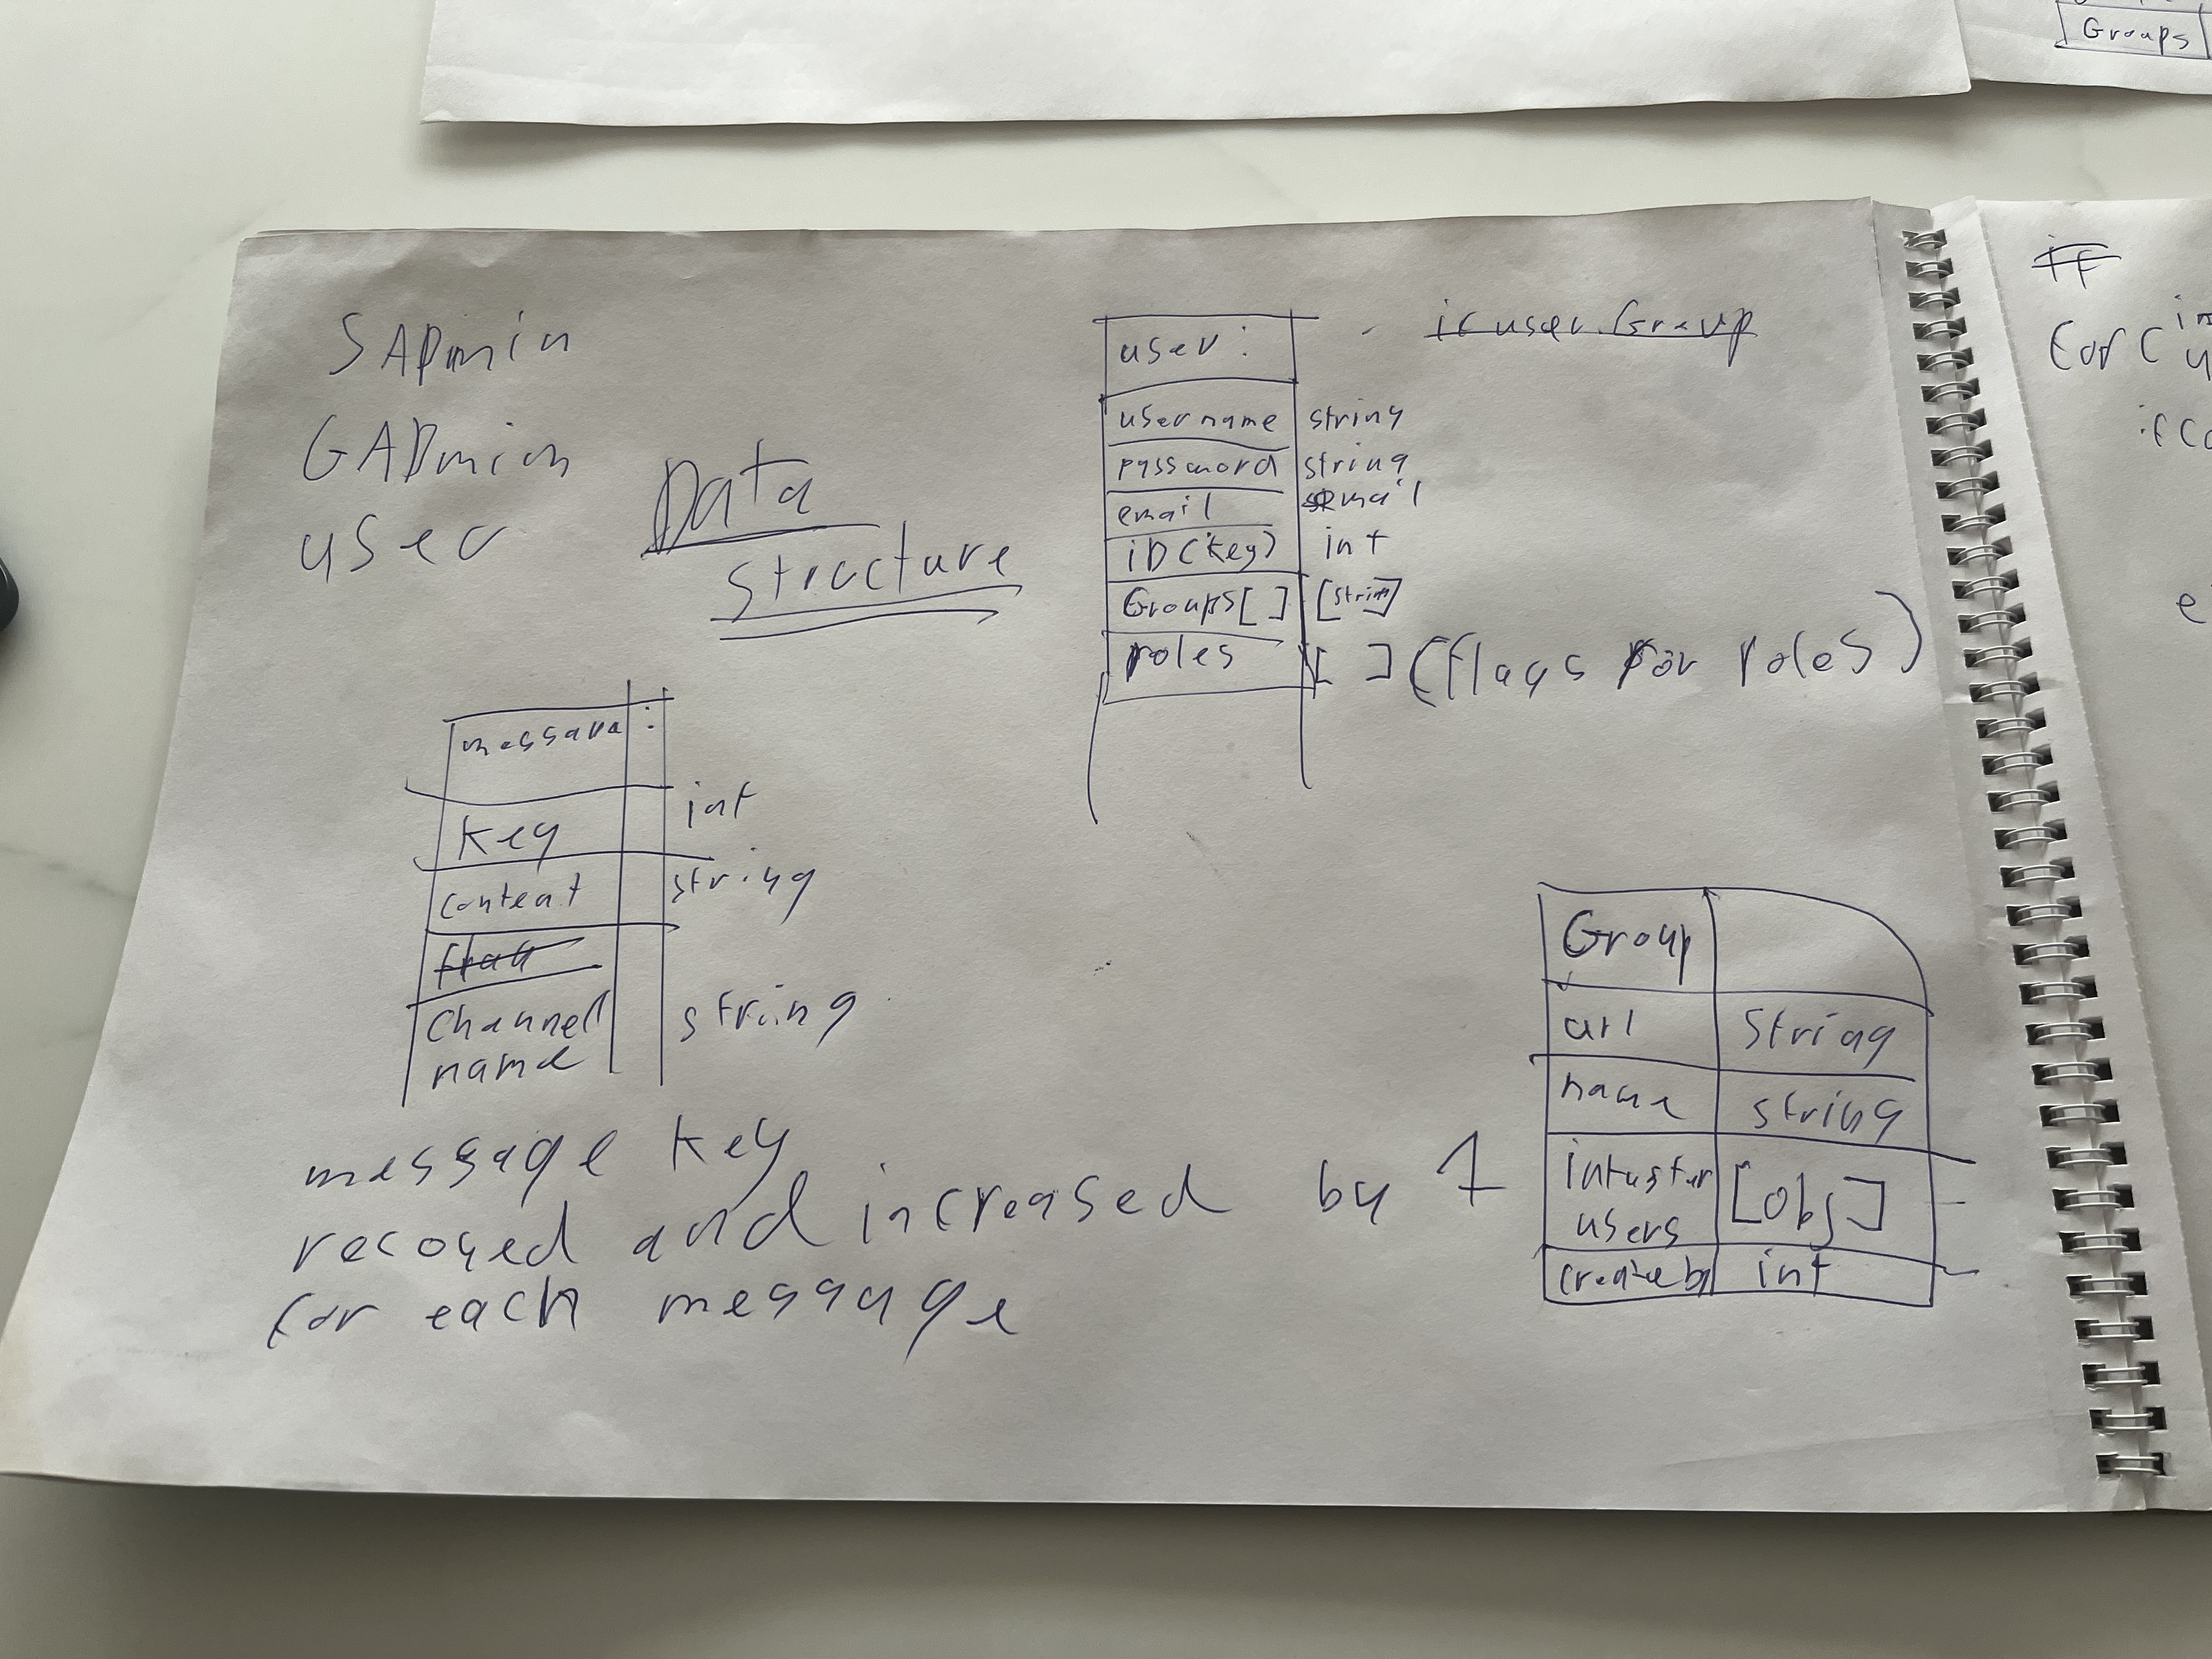 SADmin
GADmin
user
Data
Structure
user:
username string
password string
email email
iD (key) int
Groups[] [string]
roles [ ] (flags for roles)
message:
key int
content string
Chat
Channel string
name
message key
recored and increased by 1
for each message
Group
url String
name string
users [obj]
int
Groups